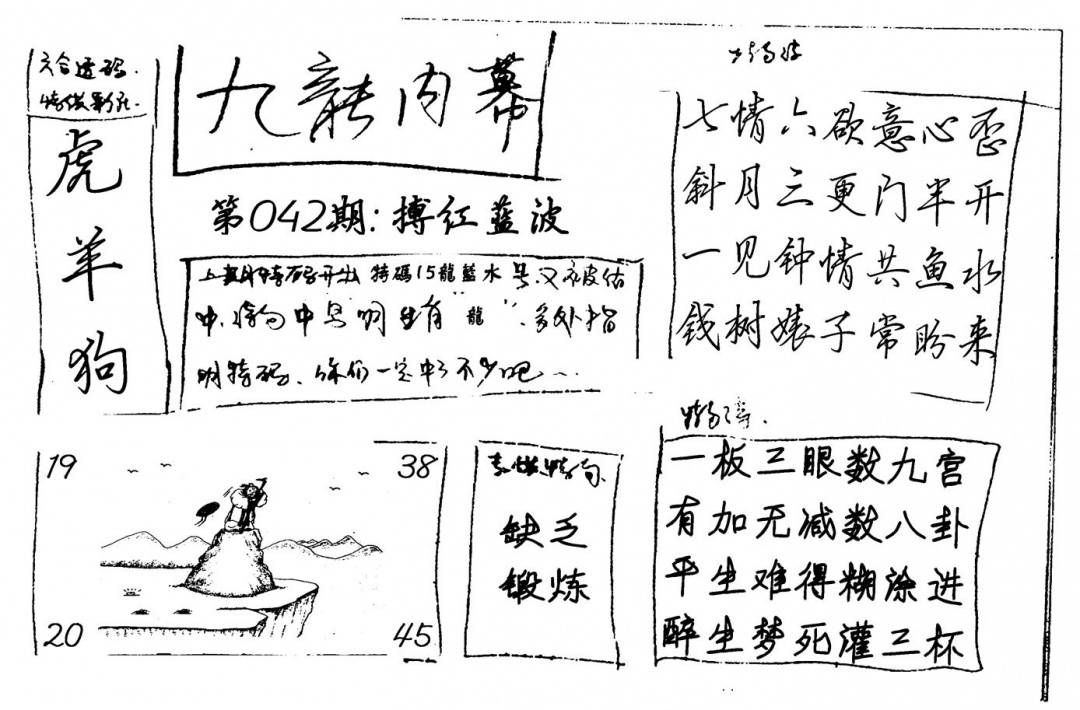 六合透码.
虎
羊
狗
九龍内幕
第042期:搏红蓝波
上期特码开出 特碼15龍藍水号又被估
中,诗句中写明生肖"龍",多处指
明特码、你们一定中了不少吧…
七情六欲意心歪
斜月三更门半开
一见钟情共鱼水
钱树婊子常盼来
19
38
20
45
缺乏
锻炼
一板三眼数九宫
有加无减数八卦
平生难得糊涂进
醉生梦死灌三杯